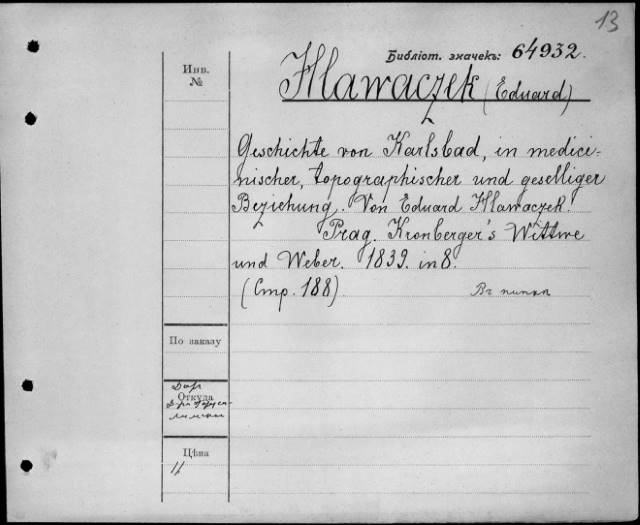 13
Библіот. значекъ: 64932.
Инв.
№
Hlawaczek (Eduard)
Geschichte von Karlsbad, in medici-
nischer, topographischer und geselliger
Beziehung. Von Eduard Hlawaczek.
Prag. Kronberger's Wittwe
und Weber. 1839. in 8.
(Стр. 188)
По заказу
Дар
Откуда
Цѣна